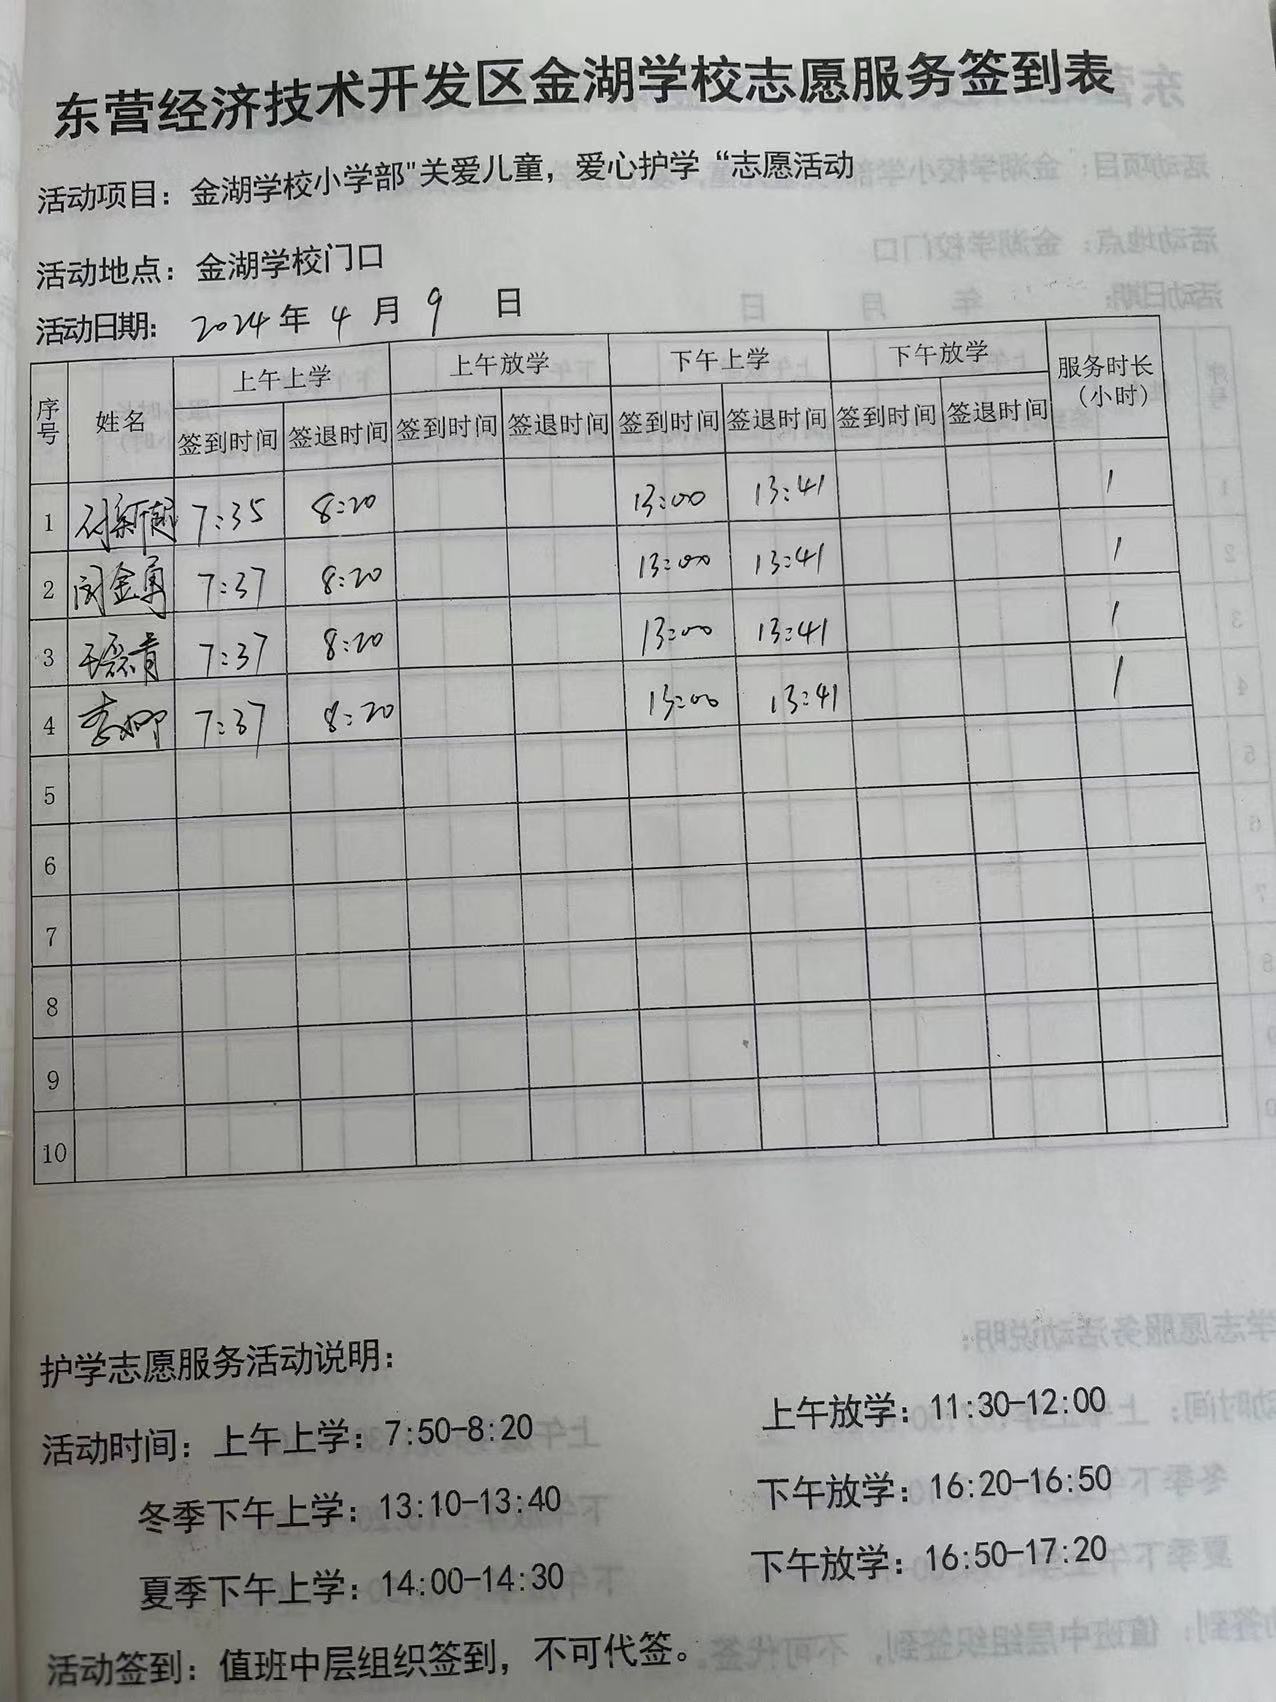 东营经济技术开发区金湖学校志愿服务签到表
活动项目：金湖学校小学部"关爱儿童，爱心护学“志愿活动
活动地点：金湖学校门口
活动日期： 2024 年 4 月 9 日
序号 姓名 上午上学 上午放学 下午上学 下午放学 服务时长（小时）
签到时间 签退时间 签到时间 签退时间 签到时间 签退时间 签到时间 签退时间
1 7:35 8:20 13:00 13:41 1
2 闵金勇 7:37 8:20 13:00 13:41 1
3 7:37 8:20 13:00 13:41 1
4 李柳 7:37 8:20 13:00 13:41 1
5
6
7
8
9
10
护学志愿服务活动说明：
活动时间：上午上学：7:50-8:20 上午放学：11:30-12:00
冬季下午上学：13:10-13:40 下午放学：16:20-16:50
夏季下午上学：14:00-14:30 下午放学：16:50-17:20
活动签到：值班中层组织签到，不可代签。